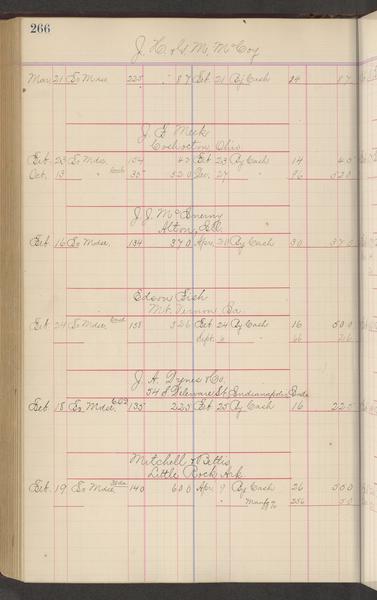 266
J. H. & G. M. McCoy
Mar 21 To Mdse 225 87 Oct 21 By Cash 84 87
J. E. Meek
Coshocton Ohio
Feb. 23 To Mdse. 154 42 Feb 23 By Cash 14 40
Oct. 13 " 35 520 Dec. 27 " 86 520
J. J. McInerny
Alton, Ill.
Feb. 16 To Mdse. 134 370 Apr. 20 By Cash 30 370
Edson Fish
Mt. Vernon
Feb. 24 To Mdse. 158 526 Feb 24 By Cash 16 500
Sept. 6 " 66 26
J. A. Dynes & Co.
54 S. Delaware St. Indianapolis Inda
Feb. 18 To Mdse. 135 225 Feb 25 By Cash 16 225
Mitchell & Bettis
Little Rock Ark
Feb. 19 To Mdse 140 600 Apr. 9 By Cash 26 500
" Manfg 256 50